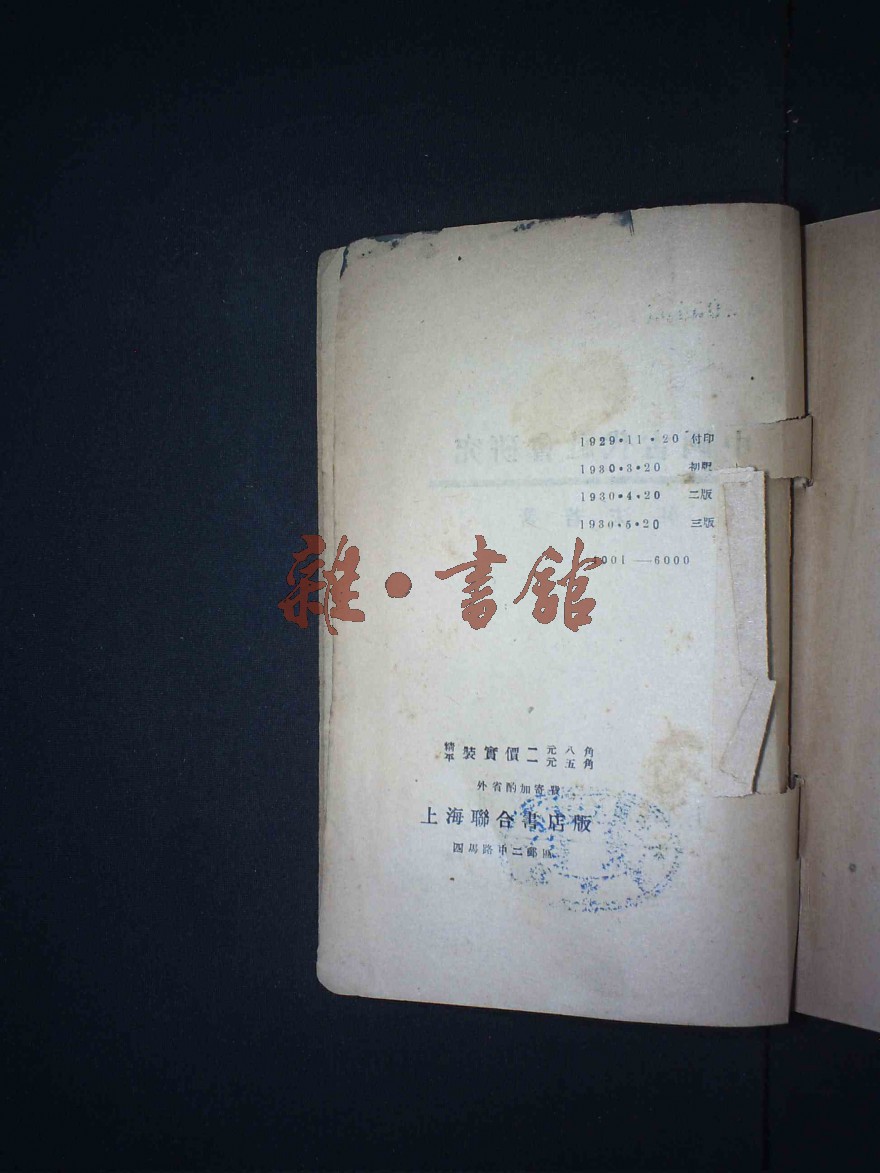 1929·11·20 付印
1930·3·20 初版
1930·4·20 二版
1930·5·20 三版
4001—6000
雜·書館
精裝實價二元八角
平裝實價一元五角
外省酌加寄費
上海聯合書店版
四馬路中二郵區